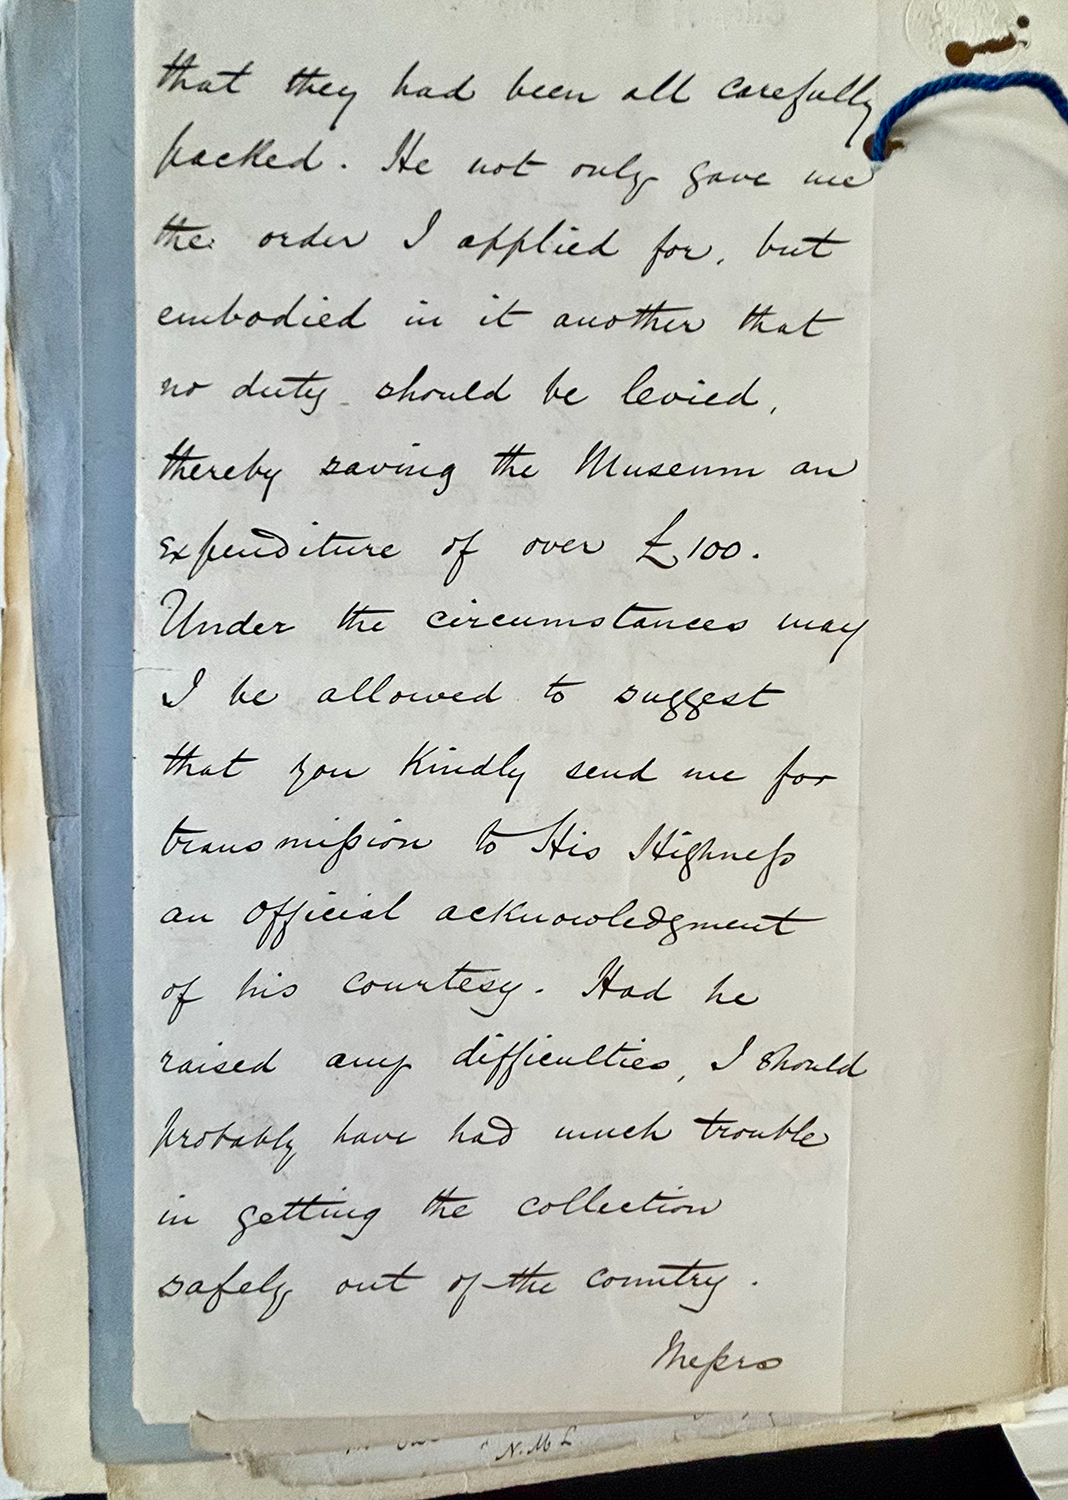 that they had been all carefully
packed. He not only gave me
the order I applied for, but
embodied in it another that
no duty should be levied,
thereby saving the Museum an
expenditure of over £100.
Under the circumstances may
I be allowed to suggest
that you Kindly send me for
transmission to His Highness
an official acknowledgment
of his courtesy. Had he
raised any difficulties, I should
probably have had much trouble
in getting the collection
safely out of the country.
Messrs
N.M L